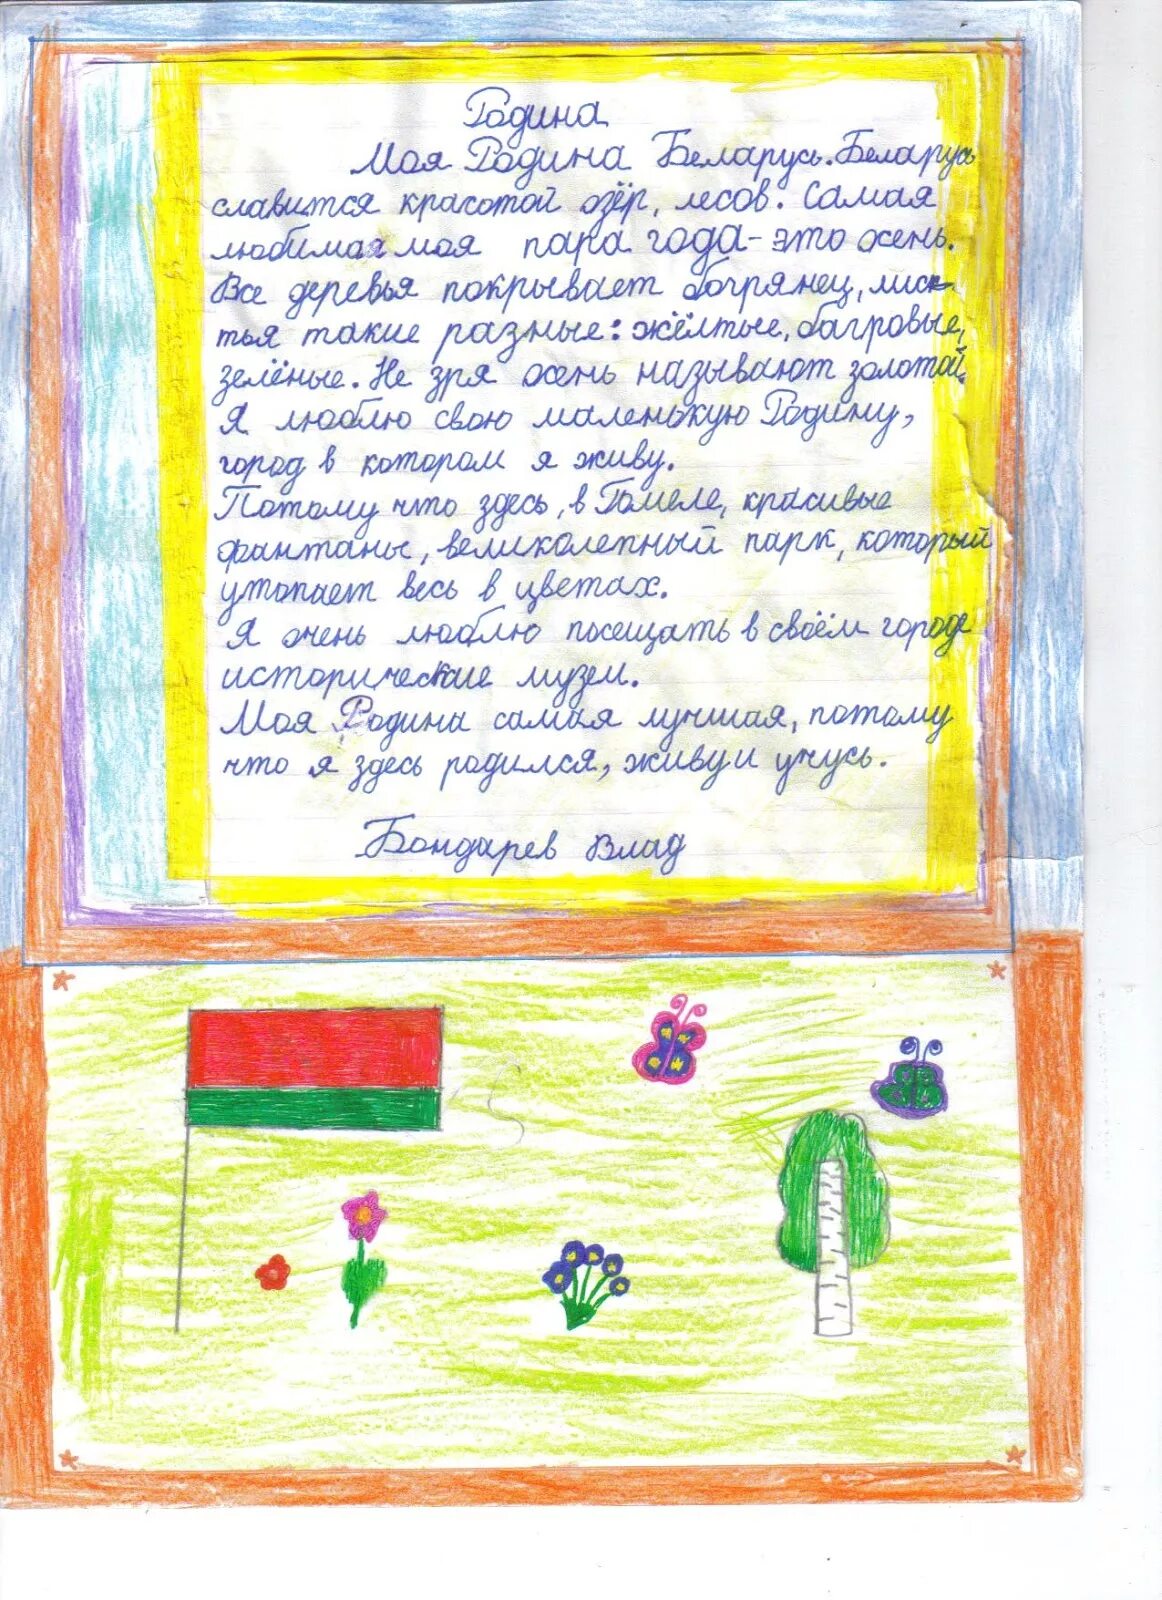 Родина
Моя Родина Беларусь. Беларусь
славится красотой озёр, лесов. Самая
любимая моя пара года - это осень.
Все деревья покрывает богрянец, лис-
тья такие разные: жёлтые, багровые,
зелёные. Не зря осень называют золотой.
Я люблю свою маленькую Родину,
город в котором я живу.
Потому что здесь, в Гомеле, красивые
фантаны, великолепный парк, который
утопает весь в цветах.
Я очень люблю посещать в своём городе
исторические музеи.
Моя Родина самая лучшая, потому
что я здесь родился, живу и учусь.
Бондарев Влад